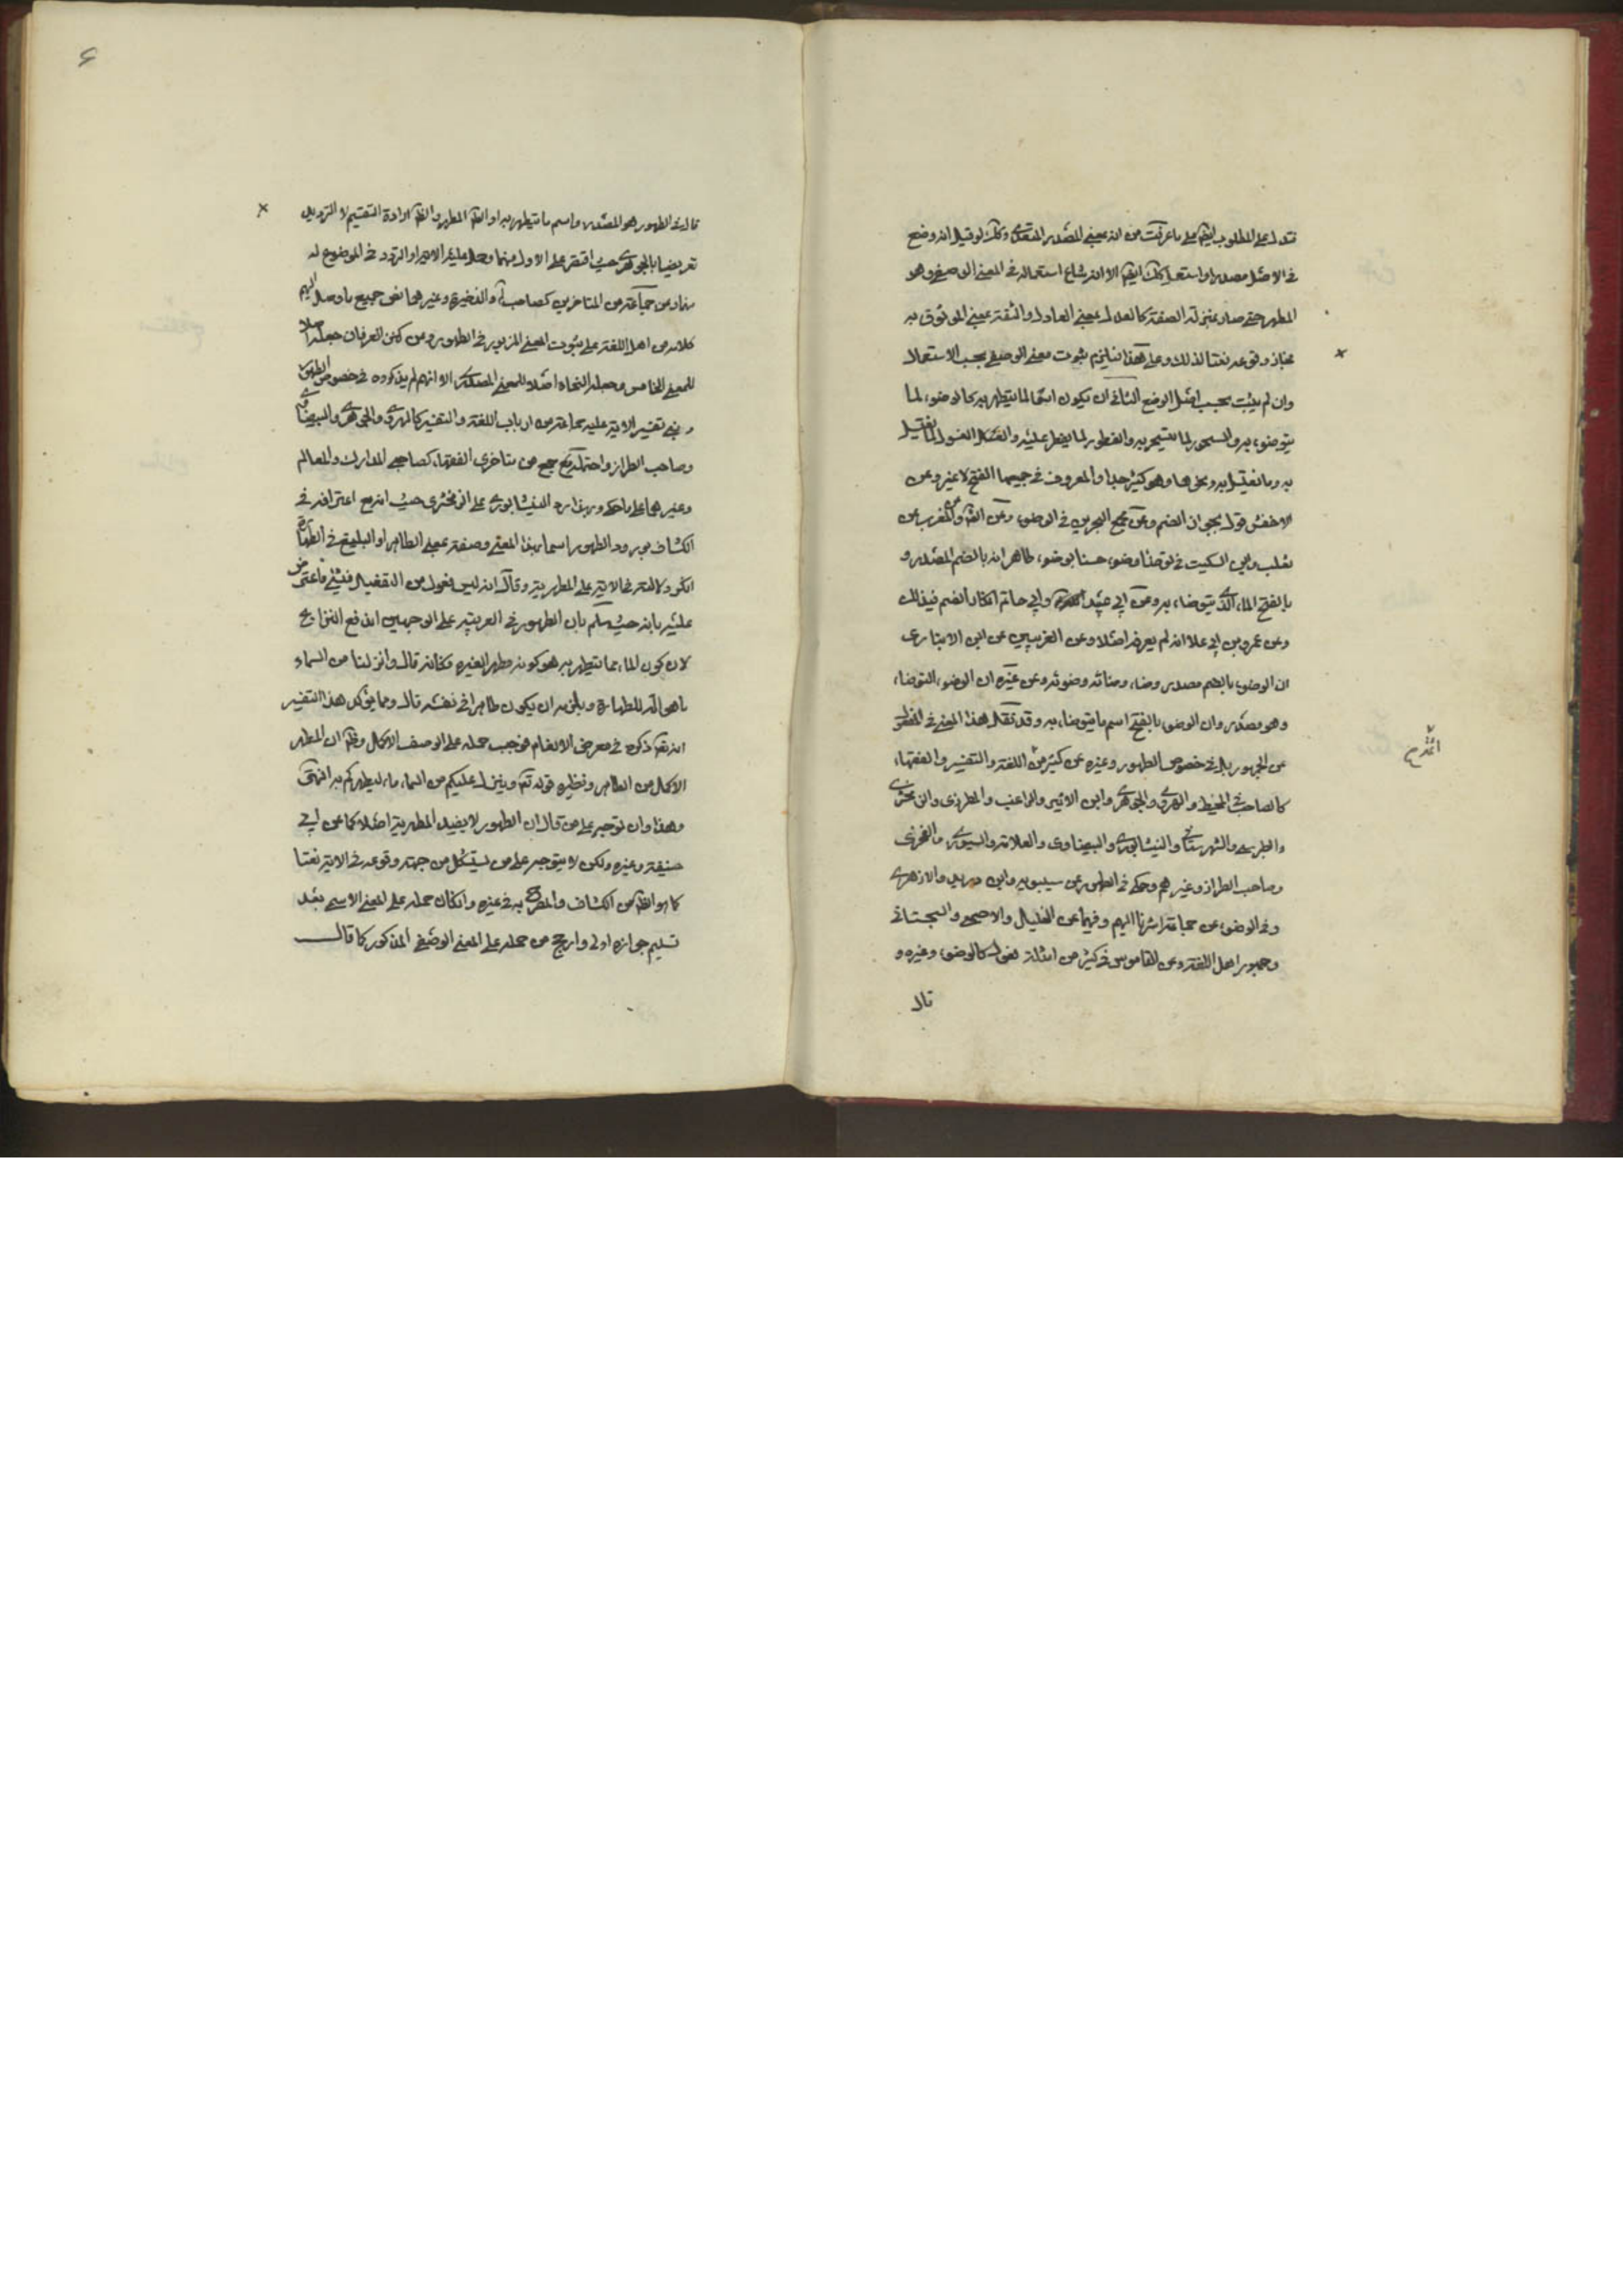 تدل على المطلوب ايضا على ما عرفت من انه بمعنى المصدر المتعدى وكك لو قيل انه وضع
فى الاصل مصدرا واستعمل كك ايضا الا انه شاع استعماله فى المعنى الوصفى وهو
المطهر حتى صار بمنزلة الصفة كالعدل بمعنى العادل والثقة بمعنى الموثوق به
فجاز وقوعه نعتا لذلك وعلى هذا فيلزم ثبوت معنى الوصفى بحسب الاستعمال
وان لم يثبت بحسب اصل الوضع الثانى ان يكون اسما لما يتطهر به كالوضوء لما
يتوضوء به والسحور لما يتسحر به والفطور لما يفطر عليه والغسول لما يغتسل
به وما يغتسل به ونحوها وهو كثير جدا والمعروف فى جميعها الفتح لا غير وعن
الاخفش قول بجواز الضم وعن مجمع البحرين فى الوضوء وعن المغرب عن
ثعلب وابن السكيت فى توضأ وضوء حسنا بوضوء طاهر انه بالضم المصدر و
بالفتح الماء الذى يتوضاء به وعن ابى عبيد وابى حاتم انكار الضم فى ذلك
وعن عمرو بن ابى علا انه لم يعرفه اصلا وعن الغريبين عن ابن الانبارى
ان الوضوء بالضم مصدر وضاء وضائة وضوئه وعن غيره ان الوضوء التوضاء
وهو مصدر وان الوضوء بالفتح اسم ما يتوضاء به وقد نقل هذا المعنى فى الطهور
عن الجمهور بل فى خصوص الطهور وغيره عن كثير من اللغة والتفسير والفقهاء
كالصاحب المحيط والهروى والجوهرى وابن الاثير والراغب والمطرزى والزمخشرى
والطبرسى والشهرستانى والنيشابورى والبيضاوى والعلامة والسيورى والفخرى
وصاحب الطراز وغيرهم وحكى فى الطهور عن سيبويه وابن دريد والازهرى
وفى الوضوء عن جماعة اشرنا اليهم وفيهما عن الخليل والاصمعى والسجستانى
وجمهور اهل اللغة وعن القاموس فى كثير من امثلة فعول كالوضوء وغيره و
قال
قال فى الطهور هو المصدر واسم ما يتطهر به او الطاهر المطهر والظ ارادة التقسيم لا الترديد
تعريضا بالجوهرى حيث اقتصر على الاول منهما
جماعة من المتاخرين كصاحب والذخيرة وغيرهما نفى جميع ما وصل اليهم
كلامه من اهل اللغة على ثبوت المعنى المزبور فى الطهور وعن كنز العرفان جعله اصلا
للمعنى الخامس وجعله النحاة اصلا للمعنى المصدرى الا انهم لم يذكروه فى خصوص الطهور
وبنى تفسير الاية عليه جماعة من ارباب اللغة والتفسير كالهروى والجوهرى والبيضاوى
وصاحب الطراز واحتمله جمع من متاخرى الفقهاء كصاحبى المدارك والمعالم
وغيرهما على ما حكى وبهذا رد النيشابورى على الزمخشرى حيث انه مع اعترافه فى
الكشاف بورود الطهور اسما بهذا المعنى وصفة بمعنى الطاهر او البليغ فى الطهارة
انكر دلالته فى الاية على المطهرية وقال انه ليس فعول من التفعيل فى شئ فاعترض
عليه بانه حيث سلم بان الطهور فى العربية على الوجهين اندفع النزاع
لان كون الماء مما يتطهر به هو كونه مطهرا لغيره فكانه قال وانزلنا من السماء
ما هو الة للطهارة ويلزمه ان يكون طاهرا فى نفسه قال ومما يؤكد هذا التفسير
انه تعالى ذكره فى معرض الانعام فوجب حمله على الوصف الاكمل وظ ان المطهر
الاكمل من الطاهر ونظيره قوله تعالى وينزل عليكم من السماء ماء ليطهركم به انتهى
وهذا وان توجه على من قال ان الطهور لا يفيد المطهرية اصلا كما عن ابى
حنيفة وغيره ولكن لا يتوجه على من يستشكل من جهة وقوعه فى الاية نعتا
كما هو الظ من الكشاف والمصرح به فى غيره وان كان حمله على المعنى الاسمى بعد
تسليم جوازه اولى وارجح من حمله على المعنى الوصفى المذكور كما قال